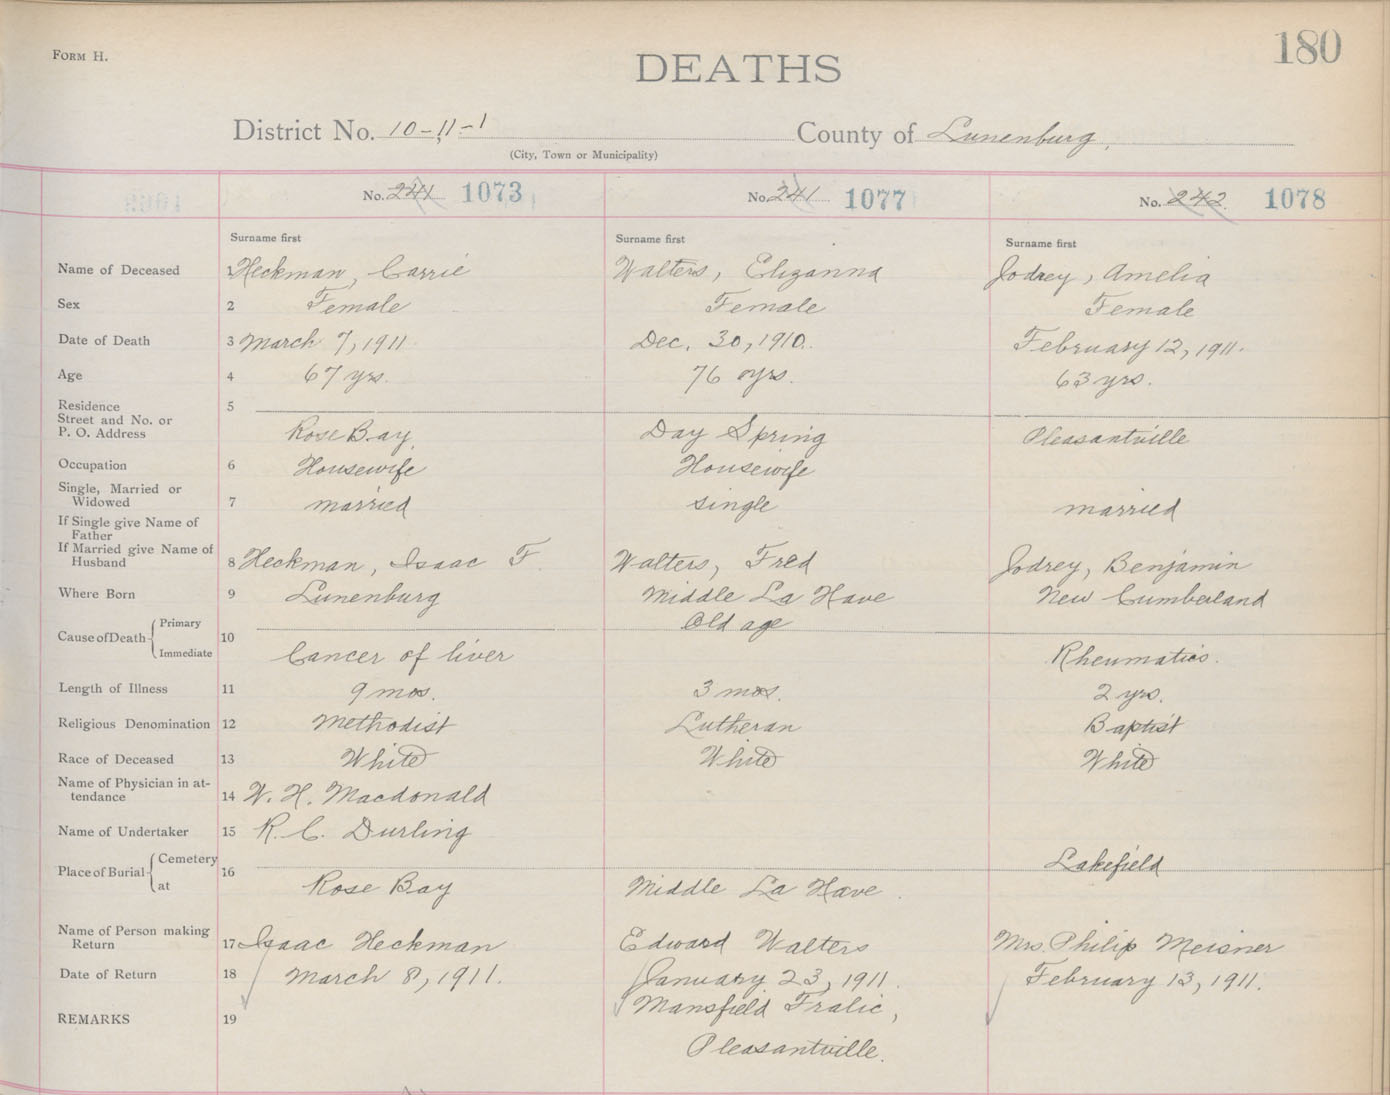 Form H.
DEATHS
180
District No. 10-11-1 County of Lunenburg.
(City, Town or Municipality)
No. 241 1073 No. 241 1077 No. 242. 1078
Surname first Surname first Surname first
Name of Deceased 1 Heckman, Carrie Walters, Elizanna Jodrey, Amelia
Sex 2 Female Female Female
Date of Death 3 March 7, 1911 Dec. 30, 1910. February 12, 1911.
Age 4 67 yrs. 76 yrs. 63 yrs.
Residence 5
Street and No. or
P. O. Address Rose Bay. Day Spring Pleasantville
Occupation 6 Housewife Housewife
Single, Married or
Widowed 7 married single married
If Single give Name of
Father
If Married give Name of
Husband 8 Heckman, Isaac F. Walters, Fred Jodrey, Benjamin
Where Born 9 Lunenburg Middle La Have New Cumberland
Cause of Death Primary 10 Old age
Immediate Cancer of liver Rheumatics.
Length of Illness 11 9 mos. 3 mos. 2 yrs.
Religious Denomination 12 Methodist Lutheran Baptist
Race of Deceased 13 White White White
Name of Physician in at-
tendance 14 W. H. Macdonald
Name of Undertaker 15 R. C. Durling
Place of Burial Cemetery 16 Lakefield
at Rose Bay Middle La Have.
Name of Person making
Return 17 Isaac Heckman Edward Walters Mrs. Philip Meisner
Date of Return 18 March 8, 1911. January 23, 1911. February 13, 1911.
REMARKS 19 Mansfield Fralic,
Pleasantville.